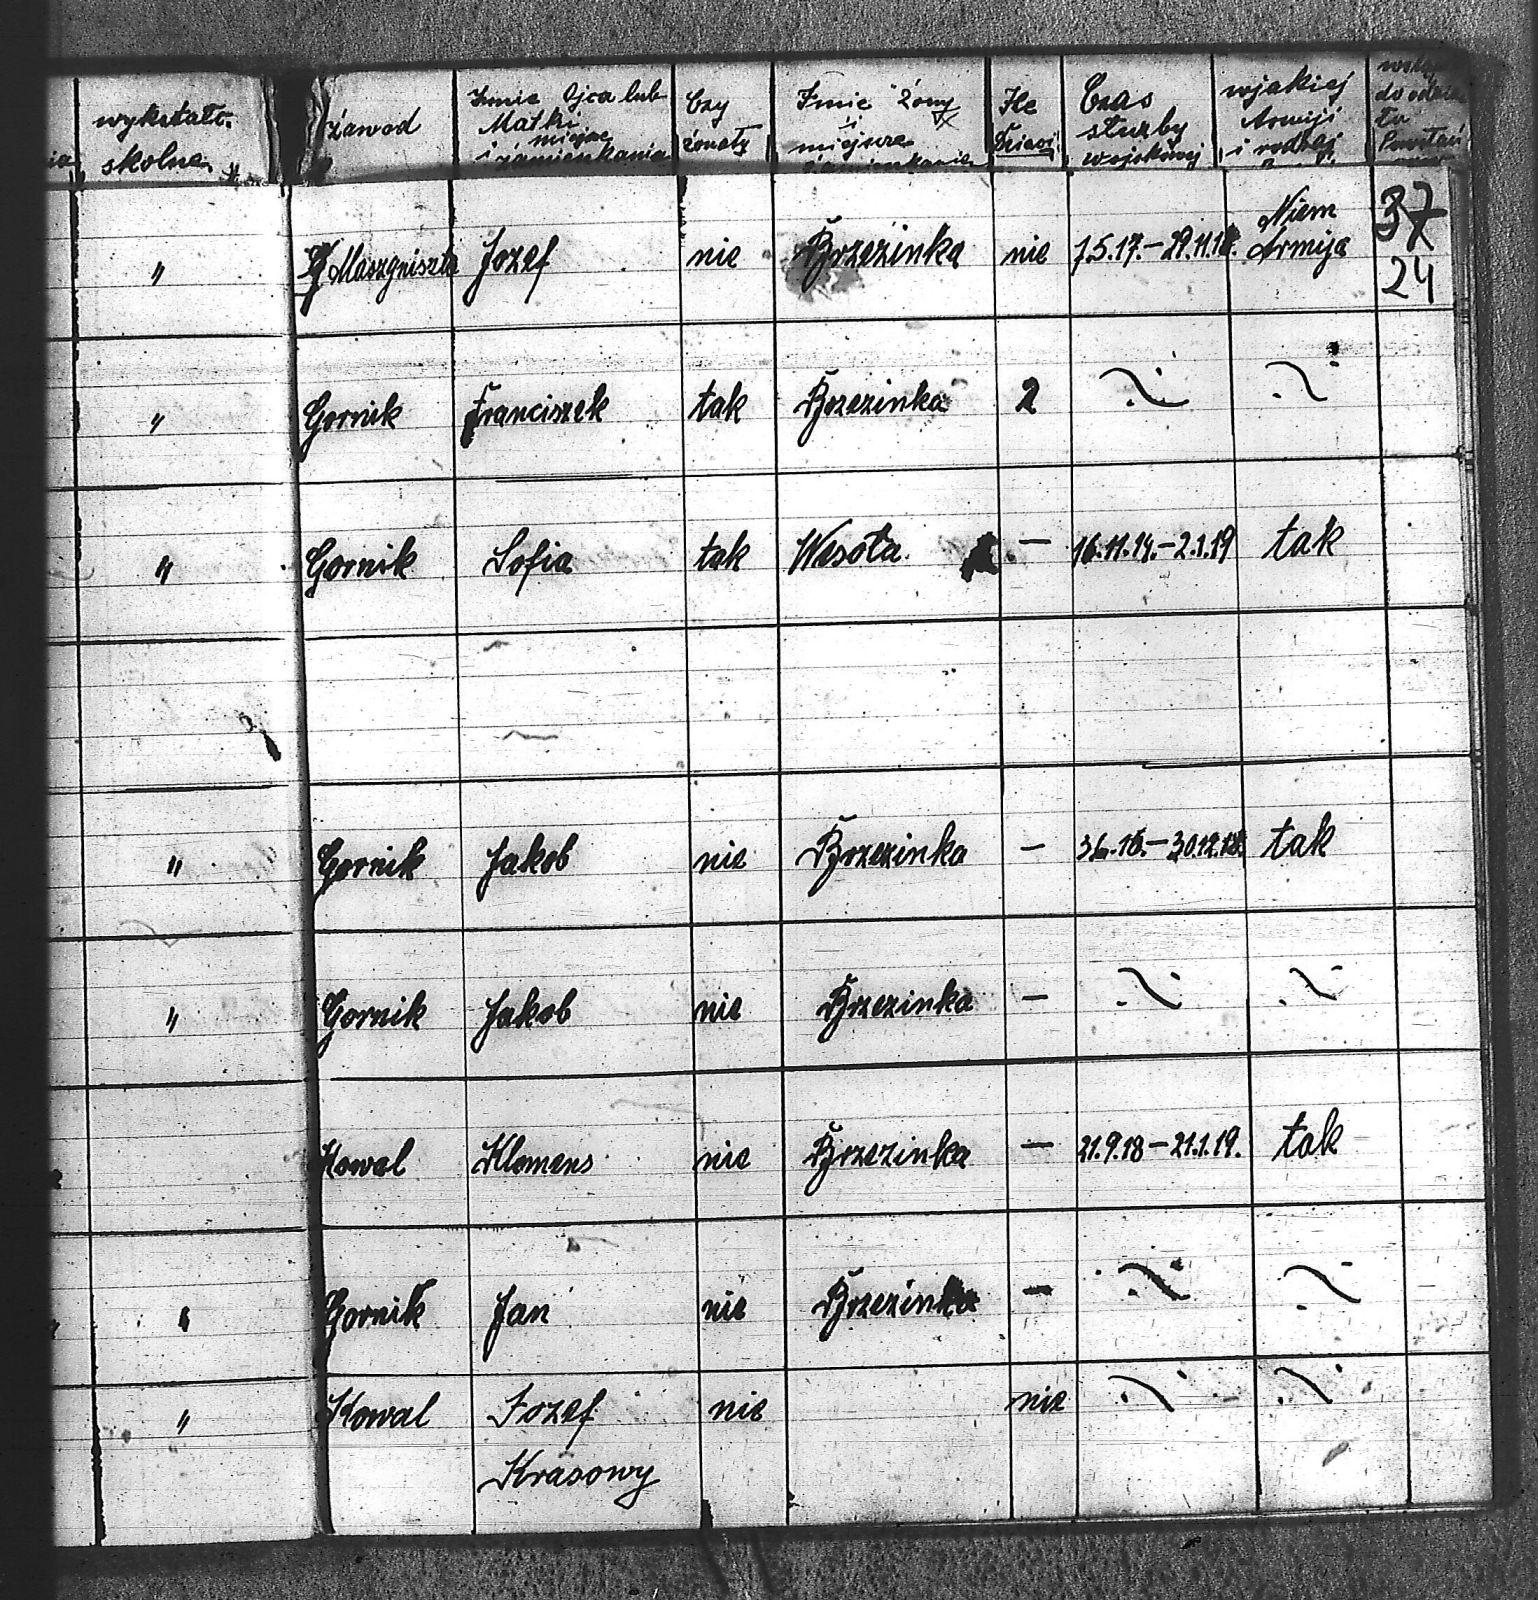 wykształc. skolne
zawod
Imie Ojca lub Matki i miejsce zamieszkania
Czy żonaty
Imie Żony i miejsce zamieszkania
Ile Dzieci
Czas służby wojskowej
wjakiej Armiji i rodzaj
do
37
24
" Maszyniszta Jozef nie Brzezinka nie 7.5.17.-29.11.18. Niem Armija
" Gornik Franciszek tak Brzezinka 2
" Gornik Sofia tak Wesoła - 16.11.14.-2.1.19 tak
" Gornik Jakob nie Brzezinka - 30.12.18. tak
" Gornik Jakob nie Brzezinka -
Kowal Klemens nie Brzezinka - 21.9.18-21.1.19. tak
" Gornik Jan nie Brzezinka -
" Kowal Jozef nie nie
Krasowy